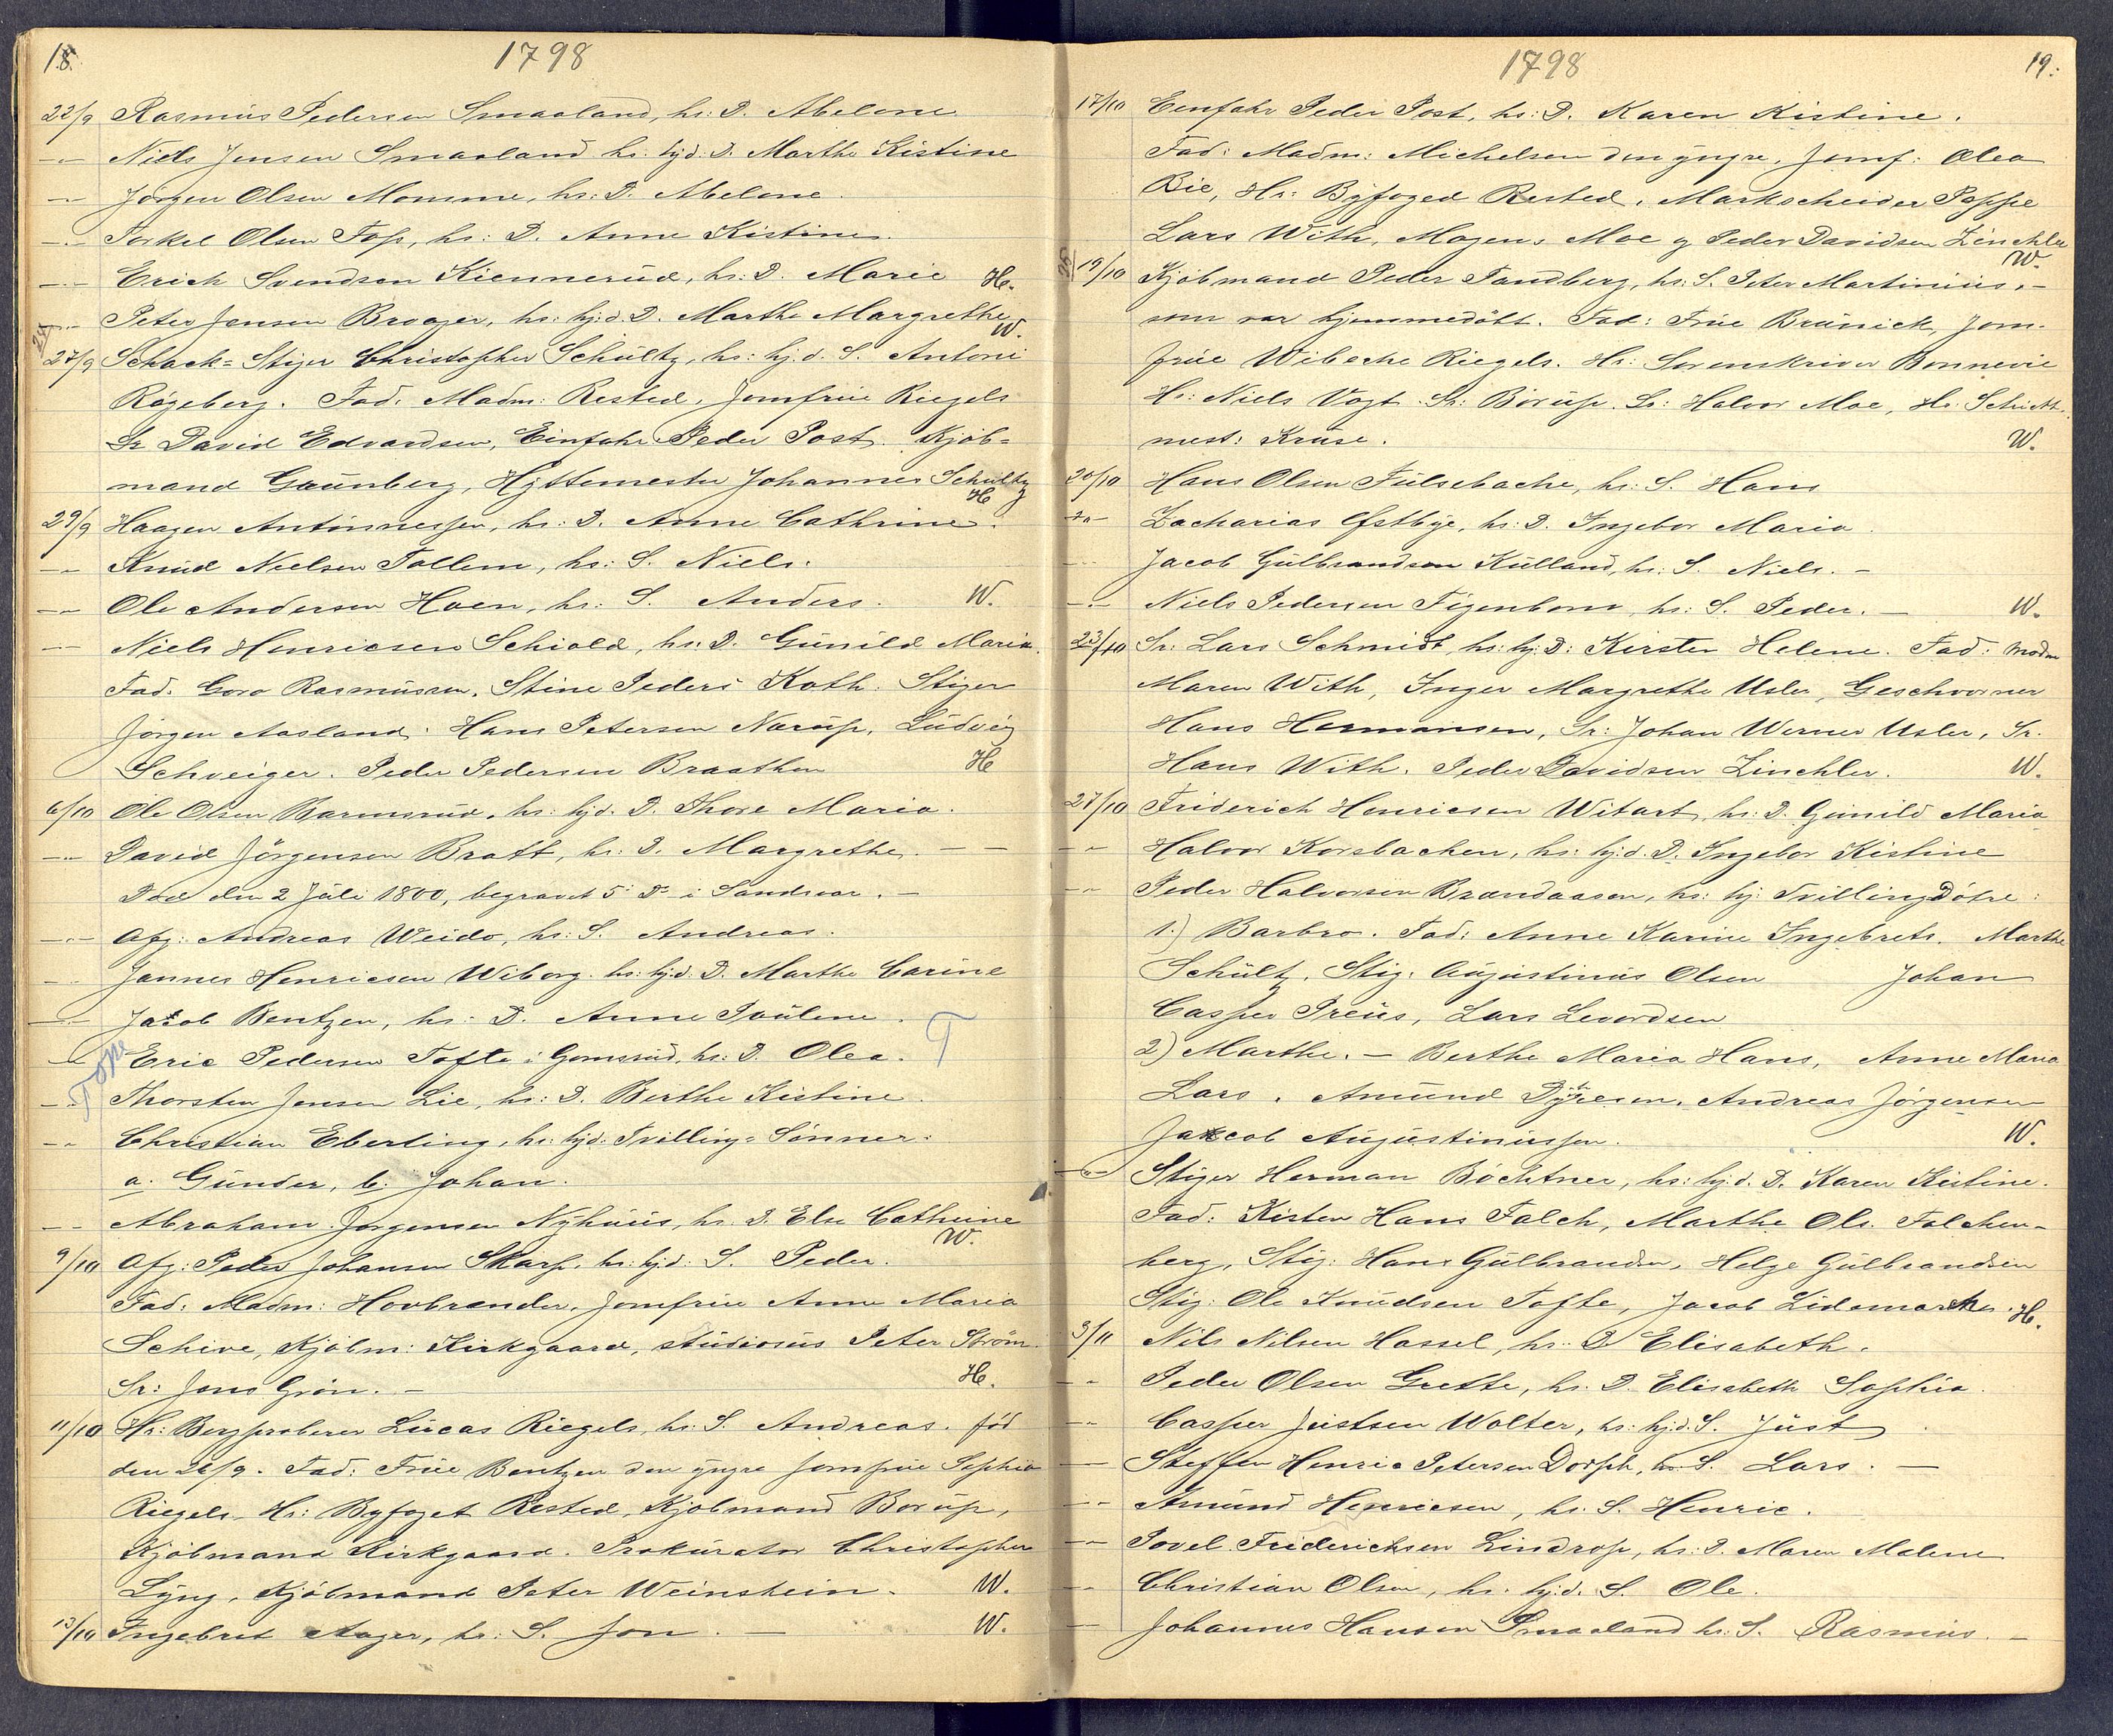 18.
1798
22/9 Rasmus Pedersen Smaaland, hs: D. Abelone
-"- Niels Jensen Smaaland hs. hjd: D. Marthe Kistine
-"- Jörgen Olsen Momme, hs: D. Abelone.
-"- Torkel Olsen Fos, hs: D. Anne Kistine.
-"- Erich Svendsen Kiennerud, hs: D. Marie H.
-"- Peter Jensen Brager, hs: hj:d: D. Marthe Margrethe W.
27/9 Schack-Stiger Christopher Schultz, hs: hj:d. S. Antoni
Rögeberg. Fad. Madm: Rested, Jomfrue Riegels
Sr David Edvardsen, Einfahr Peder Post. Kjöb-
mand Grünberg, Hyttemester Johannes Schultz H
29/9 Haagen Antonnessen, hs: D. Anne Cathrine.
-"- Knud Nielsen Tollem, hs: S. Niels.
-"- Ole Andersen Hoen, hs: S. Anders. W.
-"- Niels Henricsen Schiold, hs: D. Gunild Maria.
Fad. Goro Rasmussen. Stine Peders Kath. Stiger
Jörgen Aasland. Hans Petersen Narup, Ludvig
Schveiger. Peder Pedersen Braathen H
6/10 Ole Olsen Barmsrud, hs: hjd. D. Thore Maria.
-"- David Jörgensen Bratt, hs: D. Margrethe. — —
Död den 2 Juli 1800, begravet 5 Do i Sandsvær. —
-"- Afg: Andreas Weido, hs: S. Andreas.
-"- Jannes Henricsen Wiborg. hs: hj:d: D. Marthe Carine
-"- Jacob Bentzen, hs: D. Anne Paulene.
-"- Eric Pedersen Tofte i Gomsrud, hs: D. Olea. T
Tope
-"- Thorsten Jensen Lie, hs: D. Berthe Kistine.
-"- Christian Eberling, hs: hjd: Tvilling-Sönner:
a. Günder, b. Johan.
-"- Abraham Jörgensen Nyhuus, hs. D. Else Cathrine W.
9/10 Afg: Peder Johansen Skarp. hs: hj:d: S. Peder.
Fad: Madm: Hovbrender, Jomfrue Anne Maria
Schive, Kjöbm: Kirkgaard, studiosus Peter Ström
Sr: Jens Grön. — H.
11/10 Hr: Bergproberer Lucas Riegels, hs: S. Andreas. föd
den 26/9. Fad: Frue Bentzen den yngre Jomfrue Sophia
Riegels. Hr: Byfoget Rested, Kjöbmand Borup,
Kjöbmand Kirkgaard. Prokurator Christopher
Lyng, Kjöbmand Peter Weinstein. W.
13/10 Ingebret Aager, hs: S. Jon. — W.
1798
19.
17/10 Einfahr Peder Post, hs: D. Karen Kistine.
Fad: Madm: Michelsen den yngre, Jomf: Olea
Bie, Hr: Byfoged Rested, Markscheider Poppe
Lars With, Mogens Moe og Peder Davidsen Zinchler W.
19/10 Kjöbmand Peder Tandberg, hs: S. Peter Martinius, —
som var hjemmedöbt. Fad: Frue Brünick, Jom-
frue Wibecke Riegels. Hr: Sorenskriver Bonnevie
Hr: Niels Vogt. Sr: Borup. Sr: Halvor Moe, Hr. Schicht-
mest: Kruse. W.
20/10 Hans Olsen Fulsebache, hs: S. Hans
-"- Zacharias Östbye, hs: D. Ingebor Maria.
-"- Jacob Gulbrandsen Kulland, hs: S. Niels. —
-"- Niels Pedersen Figenbom, hs: S. Peder. — W.
23/10 Sr: Lars Schmidt, hs: hj: D: Kirsten Helene. Fad: Madm
Maren With, Inger Margrethe Usler, Geschvorner
Hans Hermansen, Sr: Johan Werner Usler, Sr.
Hans With. Peder Davidsen Zinchler. W.
27/10 Friderich Henricsen Witart, hs: D. Gunild Maria
-"- Halvor Korsbachen, hs: hj:d. D. Ingebor Kistine
-"- Peder Halvorsen Brandaasen, hs: hj: Tvilling Dötre:
1.) Barbro. Fad: Anne Karine Ingebrets. Marthe
Schultz, Stig: Augustinus Olsen Johan
Casper Preus, Lars Levordsen
2) Marthe. — Berthe Maria Hans, Anne Maria
Lars. Amund Dyresen, Andreas Jörgensen
Jacob Augustinussen. W.
-"- Stiger Herman Böchtner, hs: hj:d. D. Karen Kistine.
Fad: Kisten Hans Falch, Marthe Ols. Falchen-
berg, Stig: Hans Gulbrandsen, Helge Gulbrandsen
Stig: Ole Knudsen Tofte, Jacob Lidemarken. H.
3/11 Nils Nilsen Hassel, hs: D Elisabeth.
-"- Peder Olsen Grette, hs: D. Elisabeth Sophia.
-"- Casper Justsen Wolter, hs: hj:d. S. Just
— Steffen Henric Petersen Dorph, hs: S. Lars. —
-"- Amund Henricsen, hs: S. Henric.
-"- Povel Friderichsen Lindrop, hs: D. Maren Malene
-"- Christian Olsen, hs: hj:d. S. Ole.
— Johannes Hansen Smaaland hs: S. Rasmus. —